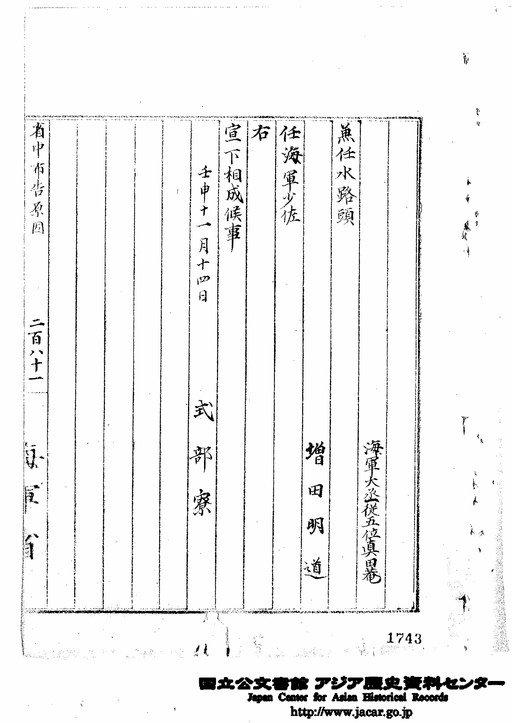 海軍大丞従五位真田
兼任水路頭
増田明道
任海軍少佐
右
宣下相成候事
壬申十一月十四日
式部寮
省中布告原図
二百八十一
海軍省
1743
国立公文書館 アジア歴史資料センター
Japan Center for Asian Historical Records
http://www.jacar.go.jp